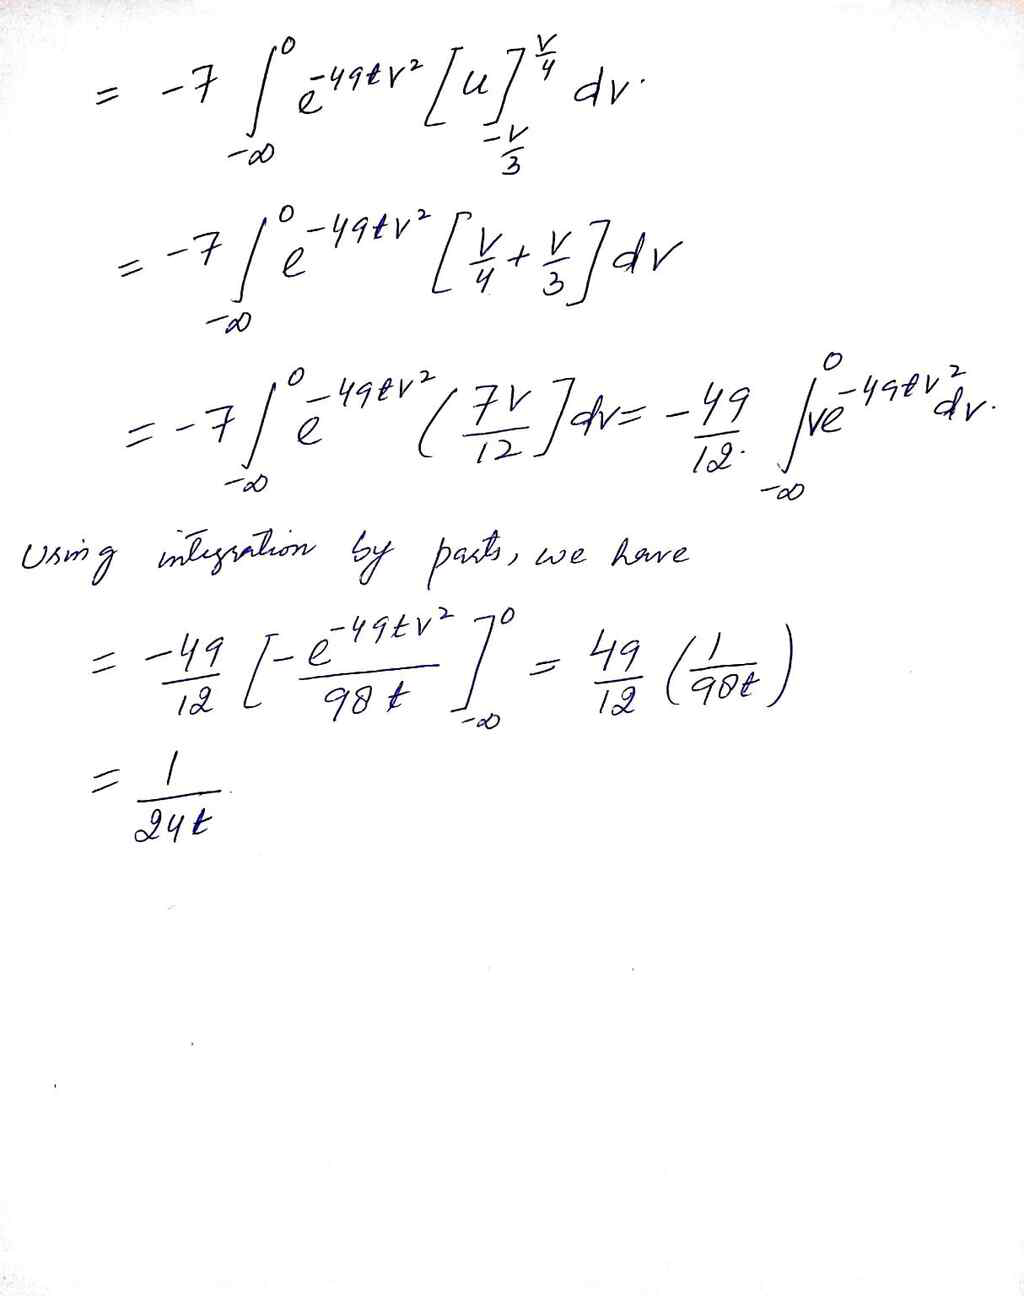 = -7 ∫_{-∞}^{0} e^{-49tv²} [u]_{-v/3}^{v/4} dv.
= -7 ∫_{-∞}^{0} e^{-49tv²} [v/4 + v/3] dv
= -7 ∫_{-∞}^{0} e^{-49tv²} (7v/12] dv = -49/12. ∫_{-∞}^{0} ve^{-49tv²} dv.
Using integration by parts, we have
= -49/12 [-e^{-49tv²}/98t]_{-∞}^{0} = 49/12 (1/98t)
= 1/24t.